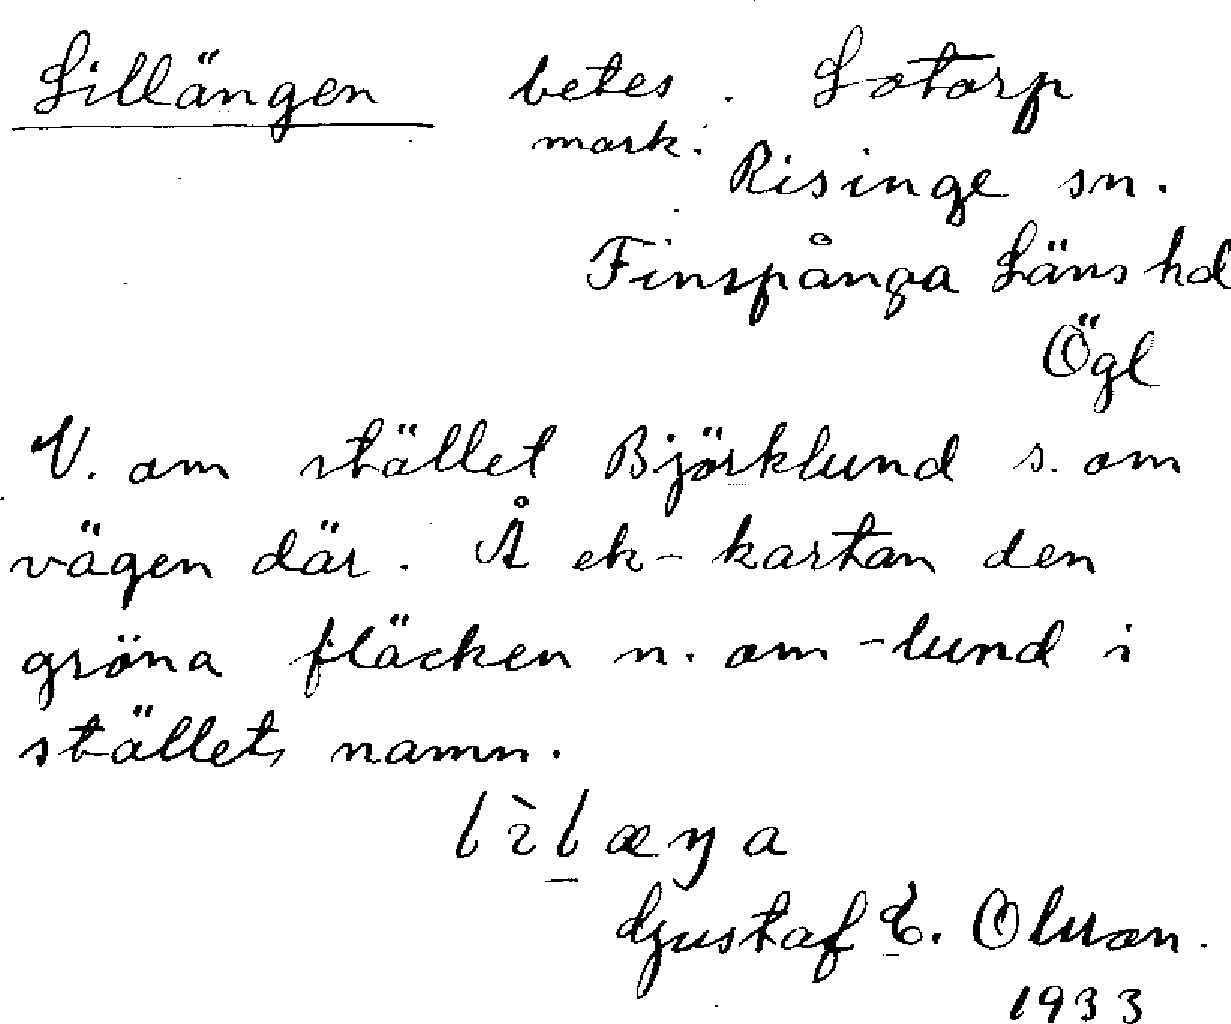 Lillängen betes. Lotorp
mark.
Risinge sn.
Finspånga Läns hd
Ögl
V. om stället Björklund s. om
vägen där. Å ek-kartan den
gröna fläcken n. om -lund i
ställets namn.
Gustaf E. Olsson.
1933